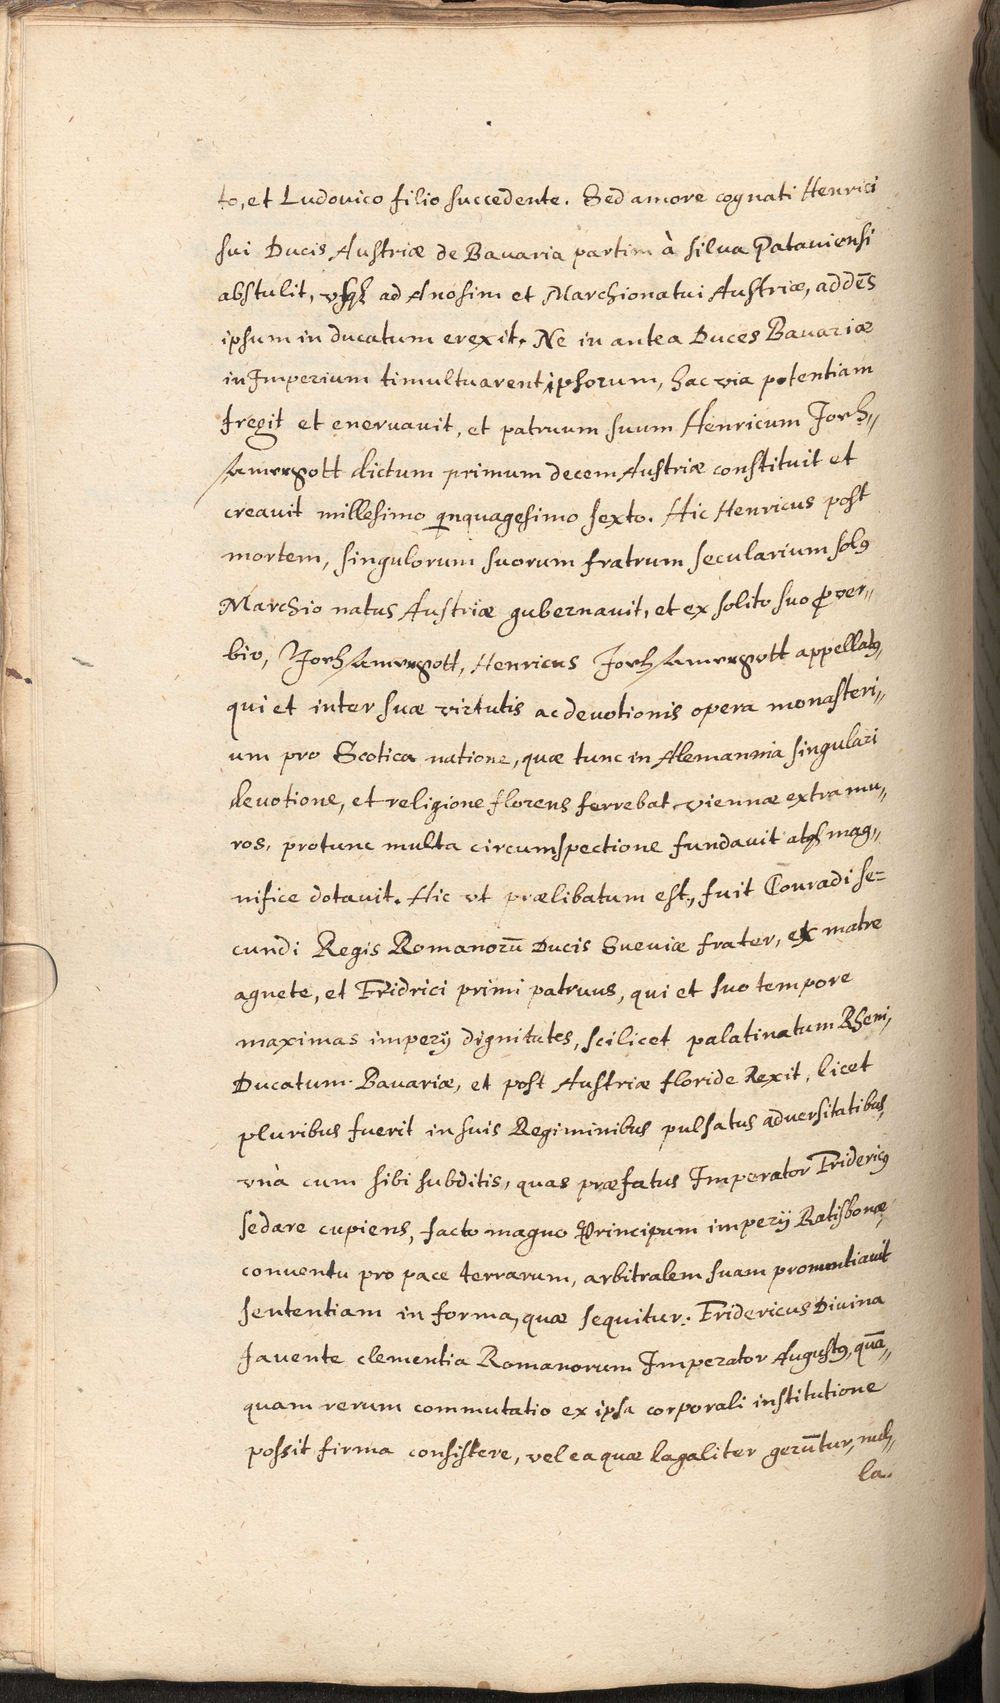 to, et Ludovico filio succedente. Sed amore cognati Henrici
sui Ducis Austriæ de Bavaria partim à silva Pataviensi
abstulit, vsq₃ ad Anosim et Marchionatui Austriæ, addēs
ipsum in ducatum erexit. Ne in antea Duces Bavariæ
in Imperium timultuarent ipsorum, hac via potentiam
fregit et enervavit, et patruum suum Henricum Joch„
samergott dictum primum decem Austriæ constituit et
creavit millesimo qnquagesimo sexto. Hic Henricus post
mortem, singulorum suorum fratrum secularium solꝰ
Marchio natus Austriæ gubernavit, et ex solito suo ꝓver„
bio, Joch samergott, Henricus Joch samergott appellatꝰ,
qui et inter suæ virtutis ac devotionis opera monasteri„
um pro Scotica natione, quæ tunc in Alemannia singulari
devotione, et religione florens ferrebat viennæ extra mu„
ros, protunc multa circumspectione fundavit atqꝫ mag„
nifice dotavit. Hic vt prælibatum est, fuit Conradi se=
cundi Regis Romanorū Ducis Sueviæ frater, ex matre
agnete, et Fridrici primi patruus, qui et suo tempore
maximas imperij dignitates, scilicet palatinatum Rheni,
Ducatum Bavariæ, et post Austriæ floride Rexit, licet
pluribus fuerit in suis Regiminibus pulsatus adversitatibus,
vnà cum sibi subditis, quas præfatus Imperator Fridericꝰ
sedare cupiens, facto magno Principum imperij Ratisbonæ
conventu pro pace terrarum, arbitralem suam promuntiavit
sententiam in forma, quæ sequitur: Fridericus Divina
favente clementia Romanorum Imperator Augustꝰ, quā„
quam rerum commutatio ex ipsa corporali institutione
possit firma consistere, vel ea quæ lagaliter gerūtur, nul„
la.